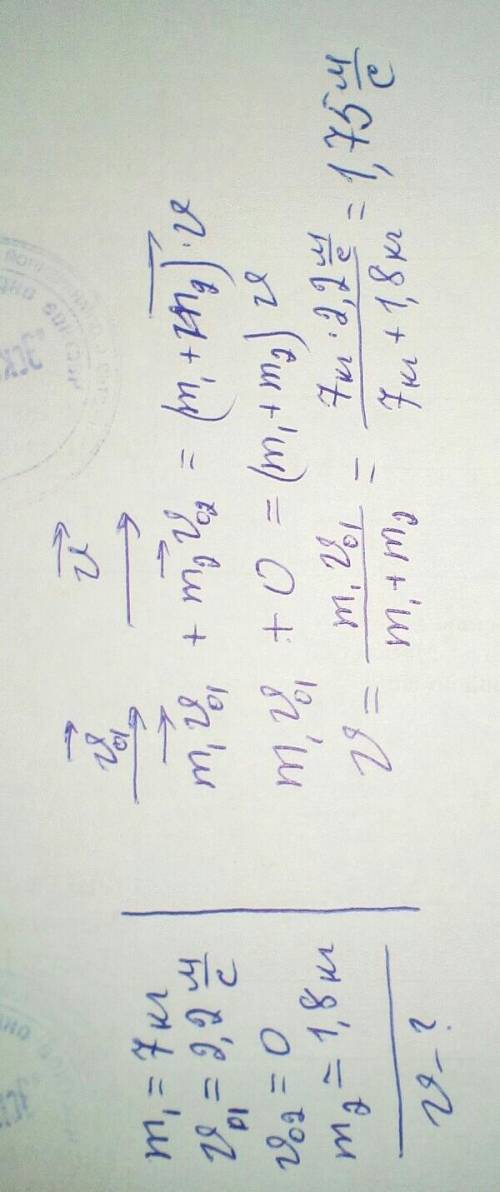 m₁ = 7 кг
v₀₁ = 2,2 м/с
v₀₂ = 0
m₂ = 1,8 кг
v – ?
v⃗₀₁ v⃗
m₁v⃗₀₁ + m₂v⃗₀₂ = (m₁ + m₂)·v⃗
m₁v₀₁ + 0 = (m₁ + m₂)v
v = m₁v₀₁ / (m₁ + m₂) = (7 кг · 2,2 м/с) / (7 кг + 1,8 кг) = 1,75 м/с